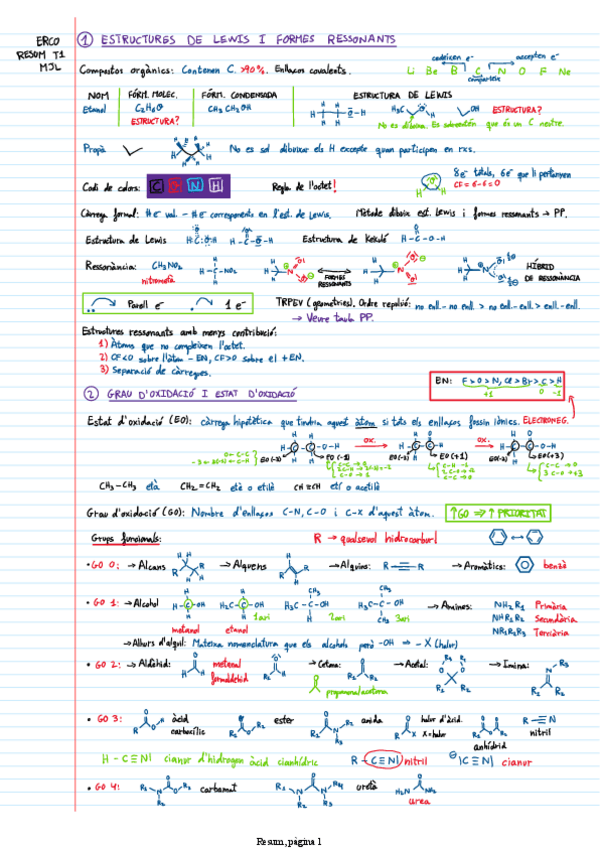 ERCO
RESUM T1
MJL
1 ESTRUCTURES DE LEWIS I FORMES RESSONANTS
Compostos orgànics: Contenen C. >90%. Enllaços covalents.
cedeixen e⁻ accepten e⁻
Li Be B C N O F Ne
comparteix
NOM FÓRM. MOLEC. FÓRM. CONDENSADA ESTRUCTURA DE LEWIS
Etanol C₂H₆O CH₃CH₂OH H₃C OH ESTRUCTURA?
ESTRUCTURA?
No es dibuixa. Es sobreentén que és un C neutre.
Propà No es sol dibuixar els H excepte quan participen en rxs.
Codi de colors: C O N H Regla de l'octet!
8e⁻ totals, 6e⁻ que li pertanyen
CF = 6-6 = 0
Càrrega formal: #e⁻ val. - #e⁻ corresponents en l'est. de Lewis. Mètode dibuix est. Lewis i formes ressonants → PP.
Estructura de Lewis Estructura de Kekulé H-C-O-H
Ressonància: CH₃NO₂
nitrometà
FORMES RESSONANTS
HÍBRID DE RESSONÀNCIA
Parell e⁻ 1 e⁻
TRPEV (geometries). Ordre repulsió: no enll.- no enll. > no enll.-enll. > enll.-enll.
→ Veure taula PP.
Estructures ressonants amb menys contribució:
1) Àtoms que no compleixen l'octet.
2) CF<0 sobre l'àtom -EN, CF>0 sobre el +EN.
3) Separació de càrregues.
EN: F>O>N, Cl>Br>C>H
+1 0 -1
2 GRAU D'OXIDACIÓ I ESTAT D'OXIDACIÓ
Estat d'oxidació (EO): càrrega hipotètica que tindria aquest àtom si tots els enllaços fossin iònics. ELECTRONEG.
OX. OX.
EO(-3) EO(-1) EO(-3) EO(+1) EO(-3) EO(+3)
CH₃-CH₃ età CH₂=CH₂ etè o etilè CH≡CH etí o acetilè
Grau d'oxidació (GO): Nombre d'enllaços C-N, C-O i C-X d'aquest àtom. ↑GO ⇒ ↑PRIORITAT
Grups funcionals: R → qualsevol hidrocarbur
• GO 0: → Alcans → Alquens → Alquins: R-≡-R → Aromàtics: benzè
• GO 1: → Alcohol → Amines: NH₂R₁ Primària
metanol etanol 1ari 2ari 3ari NHR₁R₂ Secundària
NR₁R₂R₃ Terciària
→ Alhurs d'alquil: Mateixa nomenclatura que els alcohols però -OH ⇒ -X (halur)
• GO 2: → Aldehid: metanal → Cetona: → Acetal: → Imina:
formaldehid
propanona/acetona
• GO 3: àcid carboxílic ester amida halur d'àcid. X=halur anhídrid R-≡N nitril
H-C≡N| cianur d'hidrogen àcid cianhídric R-C≡N| nitril |C≡N| cianur
• GO 4: carbamat uretà urea
Resum, pàgina 1